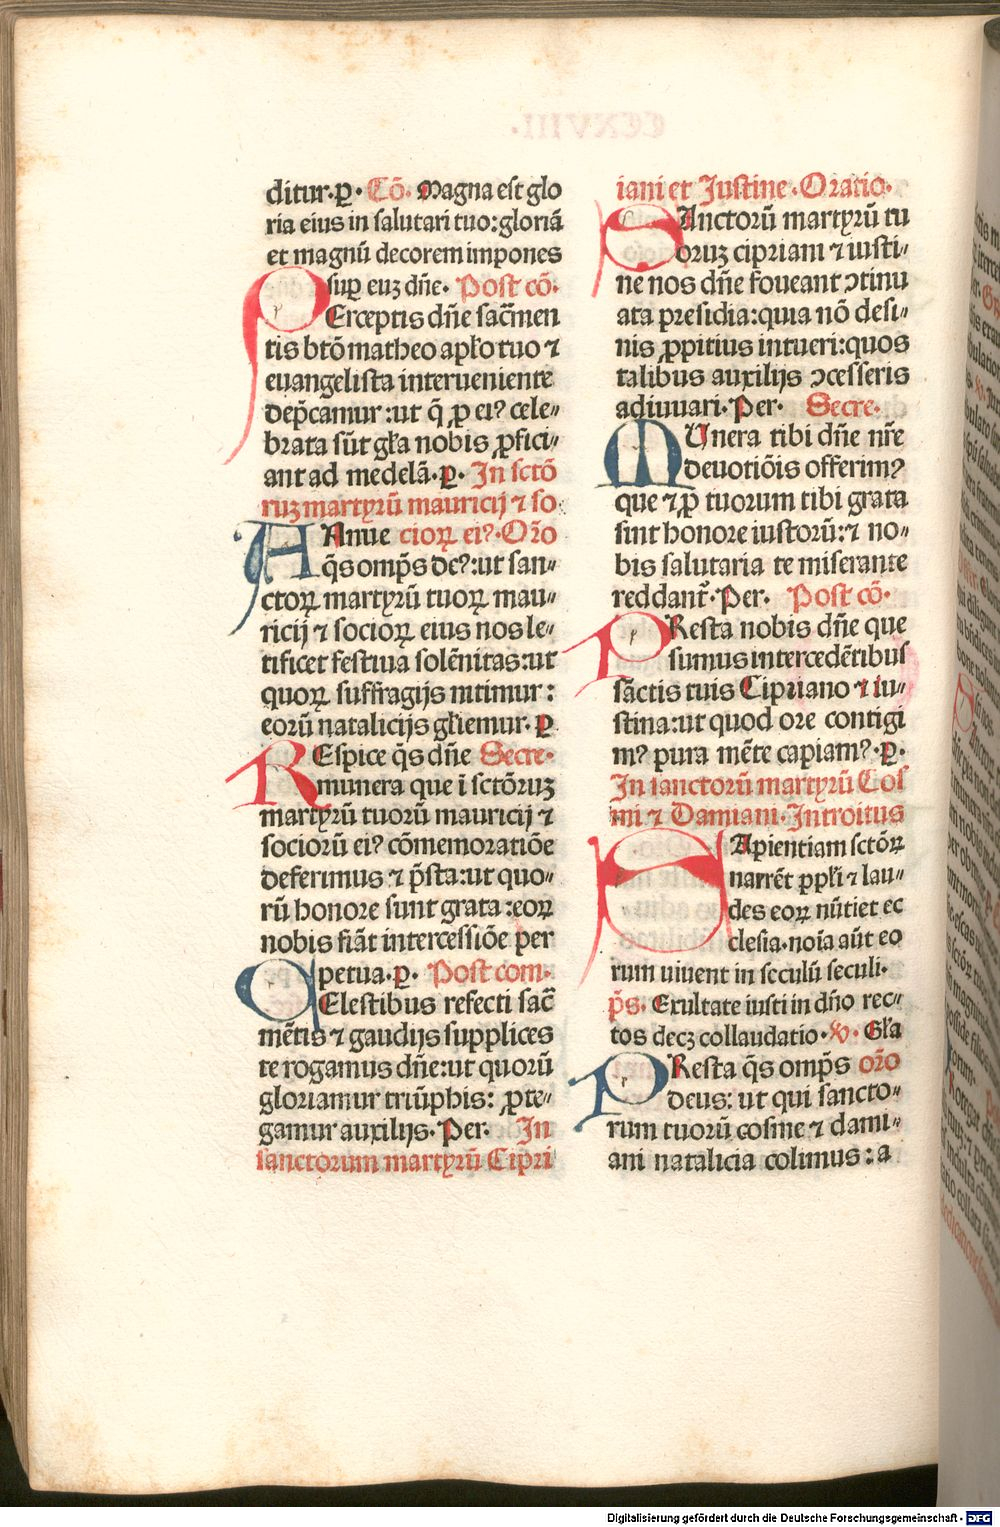 ditur·ꝑ· Cō. Magna est glo
ria eius in salutari tuo:gloriā
et magnū decorem impones
sup euʒ dñe· Post cō.
PErceptis dñe sac̄men
tis btō matheo apło tuo ⁊
euangelista interueniente
dep̄camur:ut q̄ ꝓ eiꝰ cele⸗
brata sūt gła nobis ꝓfici⸗
ant ad medelā·ꝑ· In sctō
ruʒ martyrū mauricij ⁊ so
ANnue cioꝝ eiꝰ·Orō
q̄s omp̄s deꝰ:ut san⸗
ctoꝝ martyrū tuoꝝ mau⸗
ricij ⁊ socioꝝ eius nos le⸗
tificet festiua solēnitas:ut
quoꝝ suffragijs nitimur:
eorū natalicijs głiemur·ꝑ
REspice q̄s dñe Secre·
munera que i sctōruʒ
martyrū tuorū mauricij ⁊
sociorū eiꝰ cōmemoratiōe
deferimus ⁊ p̄sta:ut quo⸗
rū honore sunt grata:eoꝝ
nobis fiāt intercessiōe per
petua·ꝑ· Post com·
CElestibus refecti sac̄
mētis ⁊ gaudijs supplices
te rogamus dñe:ut quorū
gloriamur triūphis: ꝓte⸗
gamur auxilijs·Per· In
sanctorum martyrū Cipri
iani et Justine·Oratio·
SAnctorū martyrū tu
oruʒ cipriani ⁊ iusti⸗
ne nos dñe foueant ꝯtinu
ata presidia:quia nō desi⸗
nis ꝓpitius intueri:quos
talibus auxilijs ꝯcesseris
adiuuari·Per· Secre·
MUnera tibi dñe nr̄e
deuotiōis offerimꝰ
que ⁊ ꝓ tuorum tibi grata
sint honore iustorū:⁊ no⸗
bis salutaria te miserante
reddant̄·Per· Post cō·
PResta nobis dñe que
sumus intercedētibus
sāctis tuis Cipriano ⁊ iu⸗
stina:ut quod ore contigi
mꝰ pura mēte capiamꝰ·ꝑ·
In sanctorū martyrū Cos
mi ⁊ Damiani·Introitus
SApientiam sctōꝝ
narrēt ppłi ⁊ lau⸗
des eoꝝ nūtiet ec
clesia·noīa aūt eo
rum uiuent in seculū seculi·
p̄s· Exultate iusti in dño rec⸗
tos decʒ collaudatio·℣· Gła
PResta q̄s omp̄s orō
deus: ut qui sancto⸗
rum tuorū cosme ⁊ dami⸗
ani natalicia colimus:a
CCXVIII·
Digitalisierung gefördert durch die Deutsche Forschungsgemeinschaft - DFG